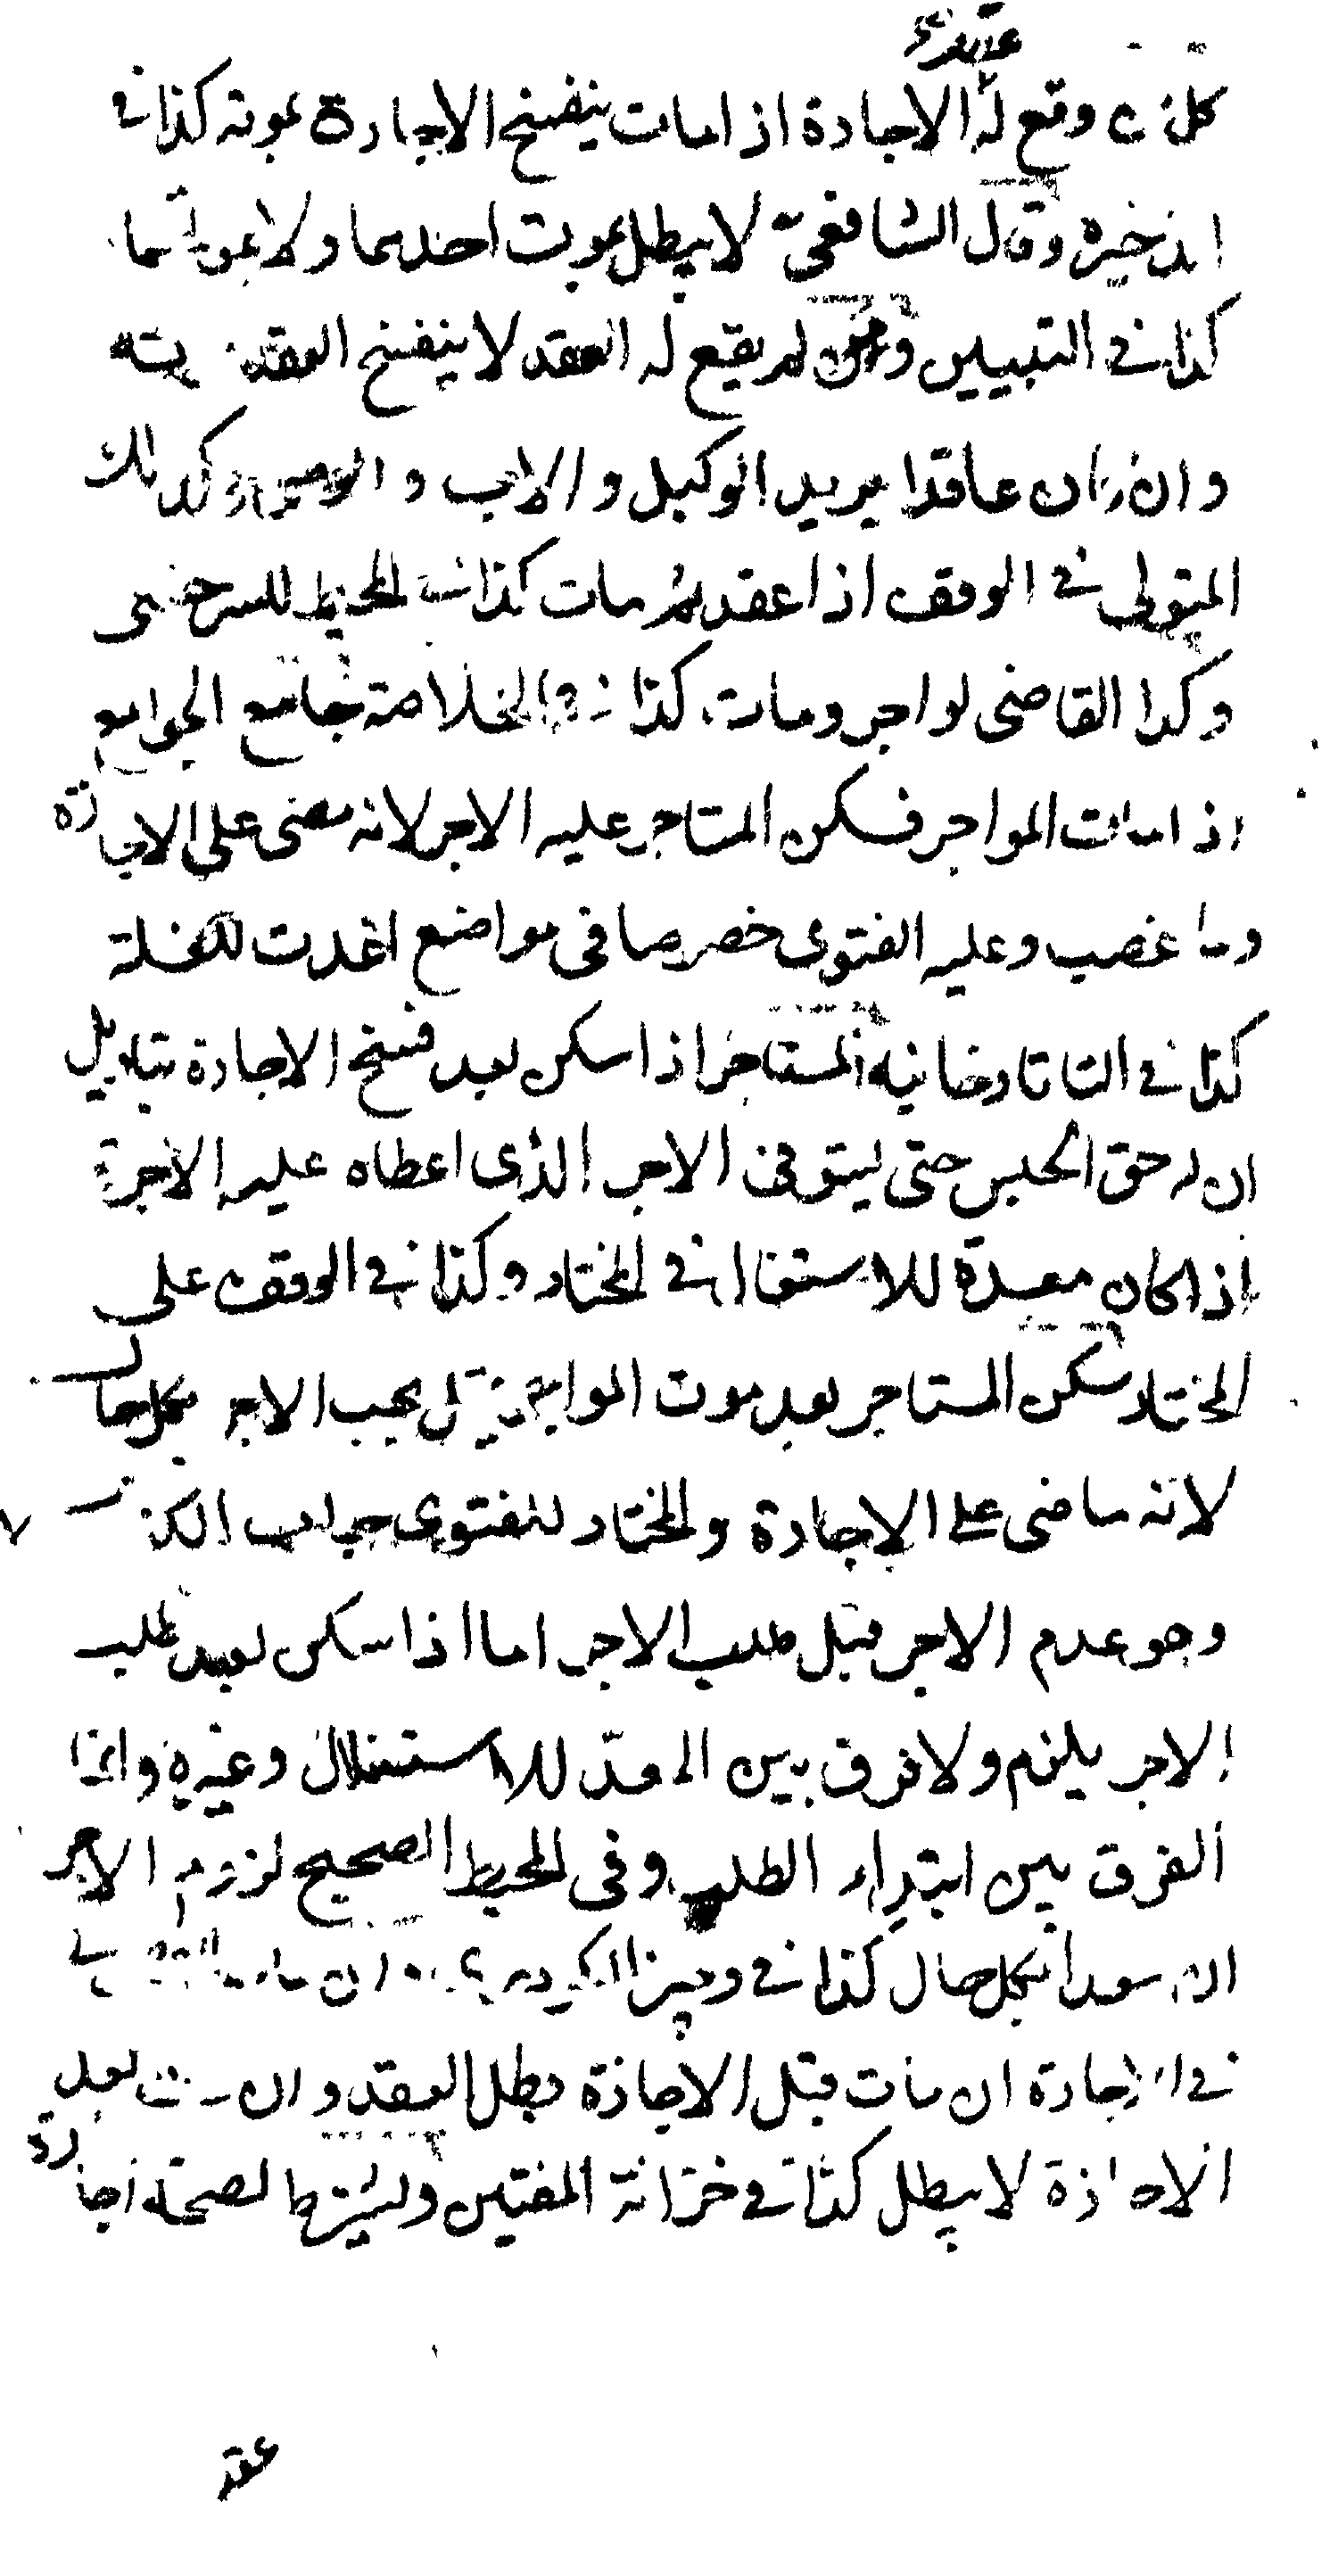 عقد
كل من وقع له الاجارة اذا مات ينفسخ الاجارة بموته كذا في
الذخيره وقال الشافعي لا يبطل بموت احدهما ولا بموتهما
كذا في التبيين ومن لم يقع له العقد لا ينفسخ العقد بموته
وان كان عاقدا يريد الوكيل والاب والوصي وكذلك
المتولى في الوقف اذا عقد ثم مات كذا في المحيط للسرخسى
وكذا القاضى لو اجر ومات كذا في الخلاصة جامع الجوامع
اذا مات المواجر فسكن المستاجر عليه الاجر لانه مضى على الاجارة
وما غصب وعليه الفتوى خصوصا في مواضع اعدت للغلة
كذا في التاتارخانيه المستاجر اذا سكن بعد فسخ الاجارة بتاويل
ان له حق الحبس حتى يستوفى الاجر الذى اعطاه عليه الاجرة
اذا كان معدة للاستغلال في المختار وكذا في الوقف على
المختار سكن المستاجر بعد موت المواجر قيل يجب الاجر بكل حال
لانه ماضى على الاجارة والمختار للفتوى جواب الكتاب
وهو عدم الاجر قبل طلب الاجر اما اذا سكن بعد طلب
الاجر يلزم ولا فرق بين المعد للاستغلال وغيره وانما
الفرق بين ابتداء الطلب وفي المحيط الصحيح لزوم الاجر
ان معدا بكل حال كذا في وجيز الكردرى وان مات
في الاجارة ان مات قبل الاجازة بطل العقد وان مات بعد
الاجازة لا يبطل كذا في خزانة المفتين ويشترط لصحة اجازة
عقد